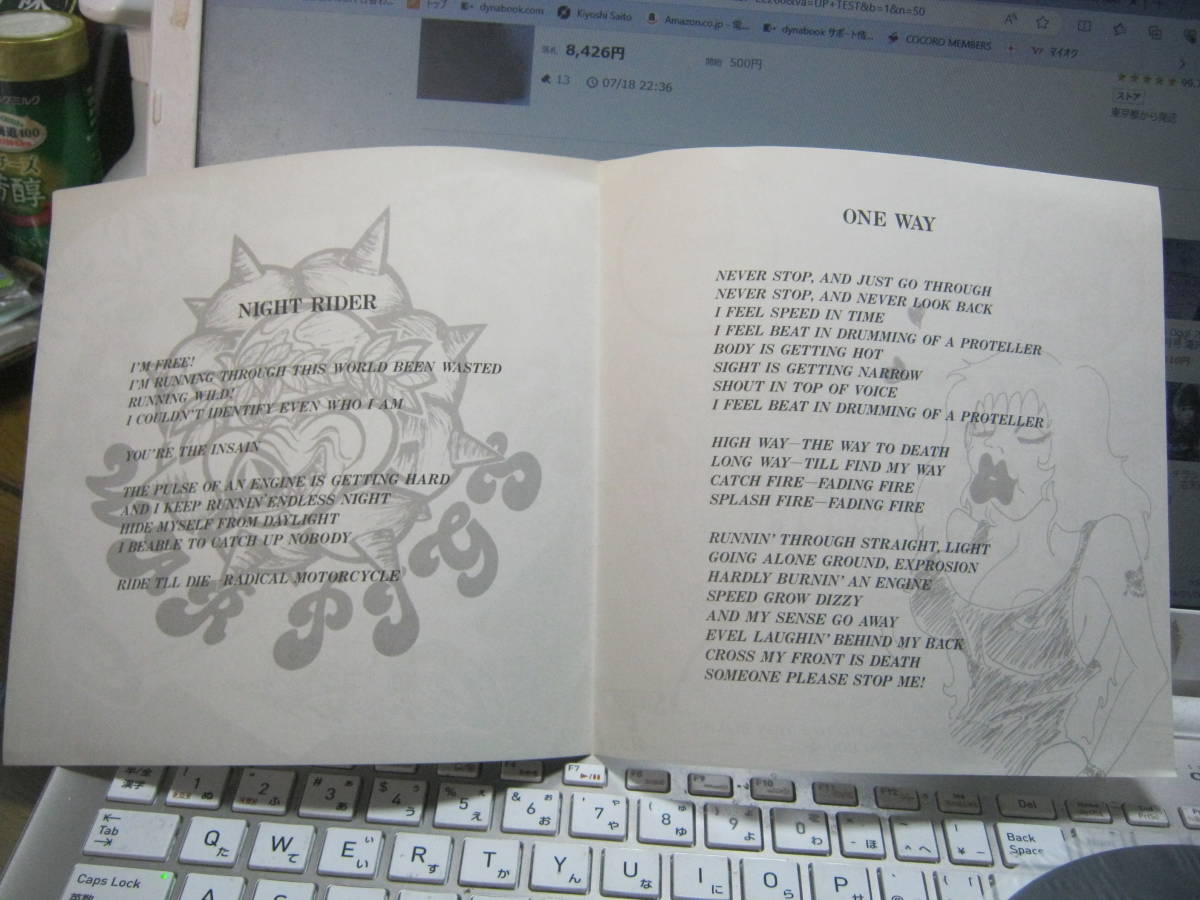 トップ
dynabook.com
Kiyoshi Saito
Amazon.co.jp - 電...
dynabook サポート情...
COCORO MEMBERS
マイオク
8,426円
開始 500円
13
07/18 22:36
ストア
東京都から発送
NIGHT RIDER
I'M FREE!
I'M RUNNING THROUGH THIS WORLD BEEN WASTED
RUNNING WILD!
I COULDN'T IDENTIFY EVEN WHO I AM
YOU'RE THE INSAIN
THE PULSE OF AN ENGINE IS GETTING HARD
AND I KEEP RUNNIN' ENDLESS NIGHT
HIDE MYSELF FROM DAYLIGHT
I BEABLE TO CATCH UP NOBODY
RIDE TLL DIE RADICAL MOTORCYCLE
ONE WAY
NEVER STOP, AND JUST GO THROUGH
NEVER STOP, AND NEVER LOOK BACK
I FEEL SPEED IN TIME
I FEEL BEAT IN DRUMMING OF A PROTELLER
BODY IS GETTING HOT
SIGHT IS GETTING NARROW
SHOUT IN TOP OF VOICE
I FEEL BEAT IN DRUMMING OF A PROTELLER
HIGH WAY—THE WAY TO DEATH
LONG WAY—TILL FIND MY WAY
CATCH FIRE—FADING FIRE
SPLASH FIRE—FADING FIRE
RUNNIN' THROUGH STRAIGHT, LIGHT
GOING ALONE GROUND, EXPROSION
HARDLY BURNIN' AN ENGINE
SPEED GROW DIZZY
AND MY SENSE GO AWAY
EVEL LAUGHIN' BEHIND MY BACK
CROSS MY FRONT IS DEATH
SOMEONE PLEASE STOP ME!
F7
Del
Tab
Q た W て E い R す T か Y ん U な I に O ら P せ
Back Space
Caps Lock